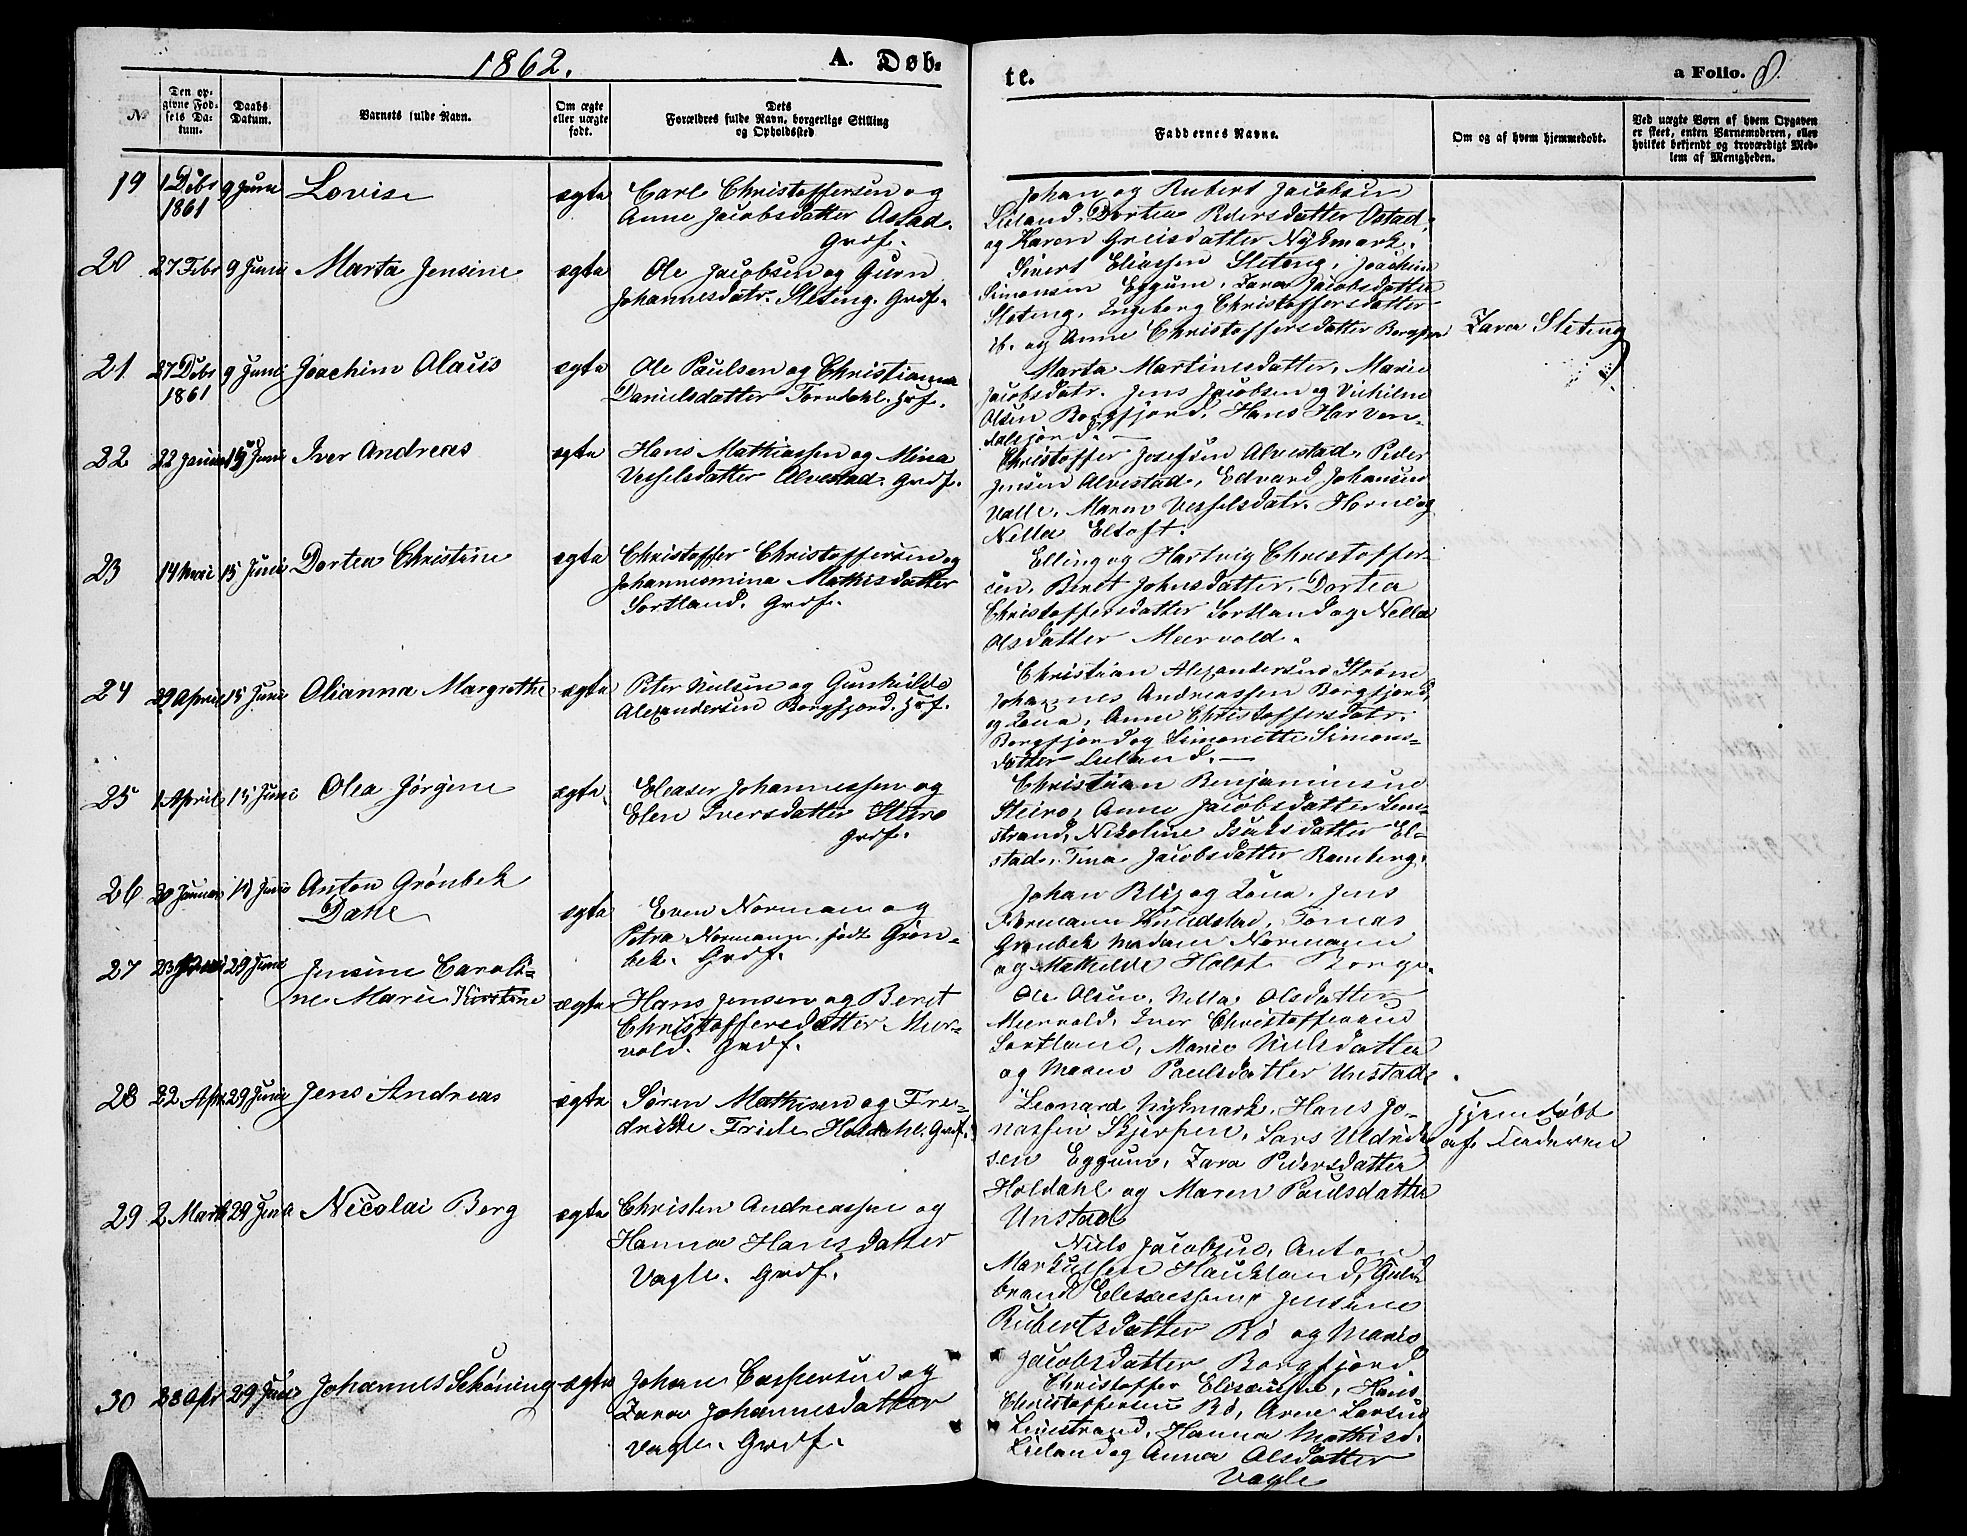 1862.
A. Døb-
te.
a Folio. 8.
№
Den op-
givne Fød-
sels Da-
tum.
Daabs
Datum.
Barnets fulde Navn.
Om ægte
eller uægte
født.
Dets
Forældres fulde Navn, borgerlige Stilling
og Opholdssted
Faddernes Navne.
Om og af hvem hjemmedøbt.
Ved uægte Børn af hvem Opgaven
er skeet, enten Barnemoderen, eller
hvilket bekjendt og troværdigt Med-
lem af Menigheden.
19
1 Debr
1861
9 Juni
Lovise
ægte
Carl Christoffersen og
Anne Jacobsdatter Astad.
Grdf.
Johan og Rubert Jacobsen
Lieland, Dortea Pedersdatter Astad,
og Karen Greisdatter Nykmark.
20
27 Febr
9 Juni
Marta Jensine
ægte
Ole Jacobsen og Gurn
Johannesdatr. Sleteng. Grdf.
Sivert Eliassen Sleteng, Joachim
Simonsen Eggum, Zara Jacobsdatter
Sleteng, Ingeborg Christoffersdatter
ib. og Anne Christoffersdatter
Zara Sleteng
21
27 Debr
1861
9 Juni
Joachim Olaus
ægte
Ole Paulsen og Christianna
Danielsdatter Torvdahl. Hsf.
Marta Martinesdatter, Marie
Jacobsdatr. Jens Jacobsen og
Olsen Borgfjord, Hans
22
22 Januar
15 Juni
Iver Andreas
ægte
Hans Mathiassen og Mina
Vesselsdatter Alvestad. Grdf.
Christoffer Josefsen Alvestad, Peder
Jensen Alvestad, Edvard Johansen
Valle, Maren Vesselsdatr. Horn og
Nella Eltoft.
23
14 Mai
15 Juni
Dortea Christine
ægte
Christoffer Christoffersen og
Johannesmina Mathisdatter
Sortland. Grdf.
Elling og Hartvig Christoffer-
sen, Beret Johnsdatter, Dortea
Christoffersdatter Sortland og Nella
Olsdatter Mærvold.
24
29 April
15 Juni
Olianna Margrethe
ægte
Peter Nielsen og Gunhilde
Alexandersen Borgfjord. Hsf.
Christian Alexandersen Strøm
Johannes Andreassen Borgfjord
og Kona, Anne Christoffersdatr.
Borgfjord og Simonette Simons-
datter Lieland.
25
1 April
15 Juni
Olea Jørgine
ægte.
Eleaser Johannessen og
Elen Iversdatter Steiro
Grdf.
Christian Benjaminsen
Steiro, Anne Jacobsdatter Lim-
strand, Nikoline Isaksdatter El-
stad, Tina Jacobsdatter Ramberg.
26
20 Januar
Juni
Anton Grønbek
Dahl
ægte
Even Normann og
Petra Normann, født Grøn-
bek. Grdf.
Johan Blix og Kona, Jens
Normann, Tomas
Grønbek Madam Normann
og Mathilde Holst Borge.
27
29 Juni
Jensine Caroli-
ne Marie Kirstine
ægte
Hans Jensen og Beret
Christoffersdatter Mær-
vold. Grdf.
Ole Olsen, Nella Olsdatter
Mærvold, Iver Christoffersen
Sortland, Marie Nilsdatter
og Maren Paulsdatter Unstad.
28
22 Apr
29 Juni
Jens Andreas
ægte
Søren Mathisen og Fre-
drikke Holdahl. Grdf.
Leonard Nykmark, Hans Jo-
nassen Skjerpen, Lars
sen Eggum, Zara Pedersdatter
Holdahl og Maren Paulsdatter
Unstad
Hjemdøbt
af Faderen
29
2 Marts
29 Juni
Nicolai Berg
ægte
Christen Andreassen og
Hanna Hansdatter
Vagle. Grdf.
Niels Jacobsen, Anton
Markussen Haukland, Guld-
brand Eliseussen, Jensine
Rubertsdatter Bø og Maria
Jacobsdatter Borgfjord
30
28 Apr
29 Juni
Johannes Schøning
ægte
Johan Caspersen og
Zara Johannesdatter
Vagle. Grdf.
Christoffer Eliseussen, Hans
Christoffersen Bø, Arne Larsen
Limstrand, Hanna Mathisd.
Lieland og Anna Olsdatter
Vagle